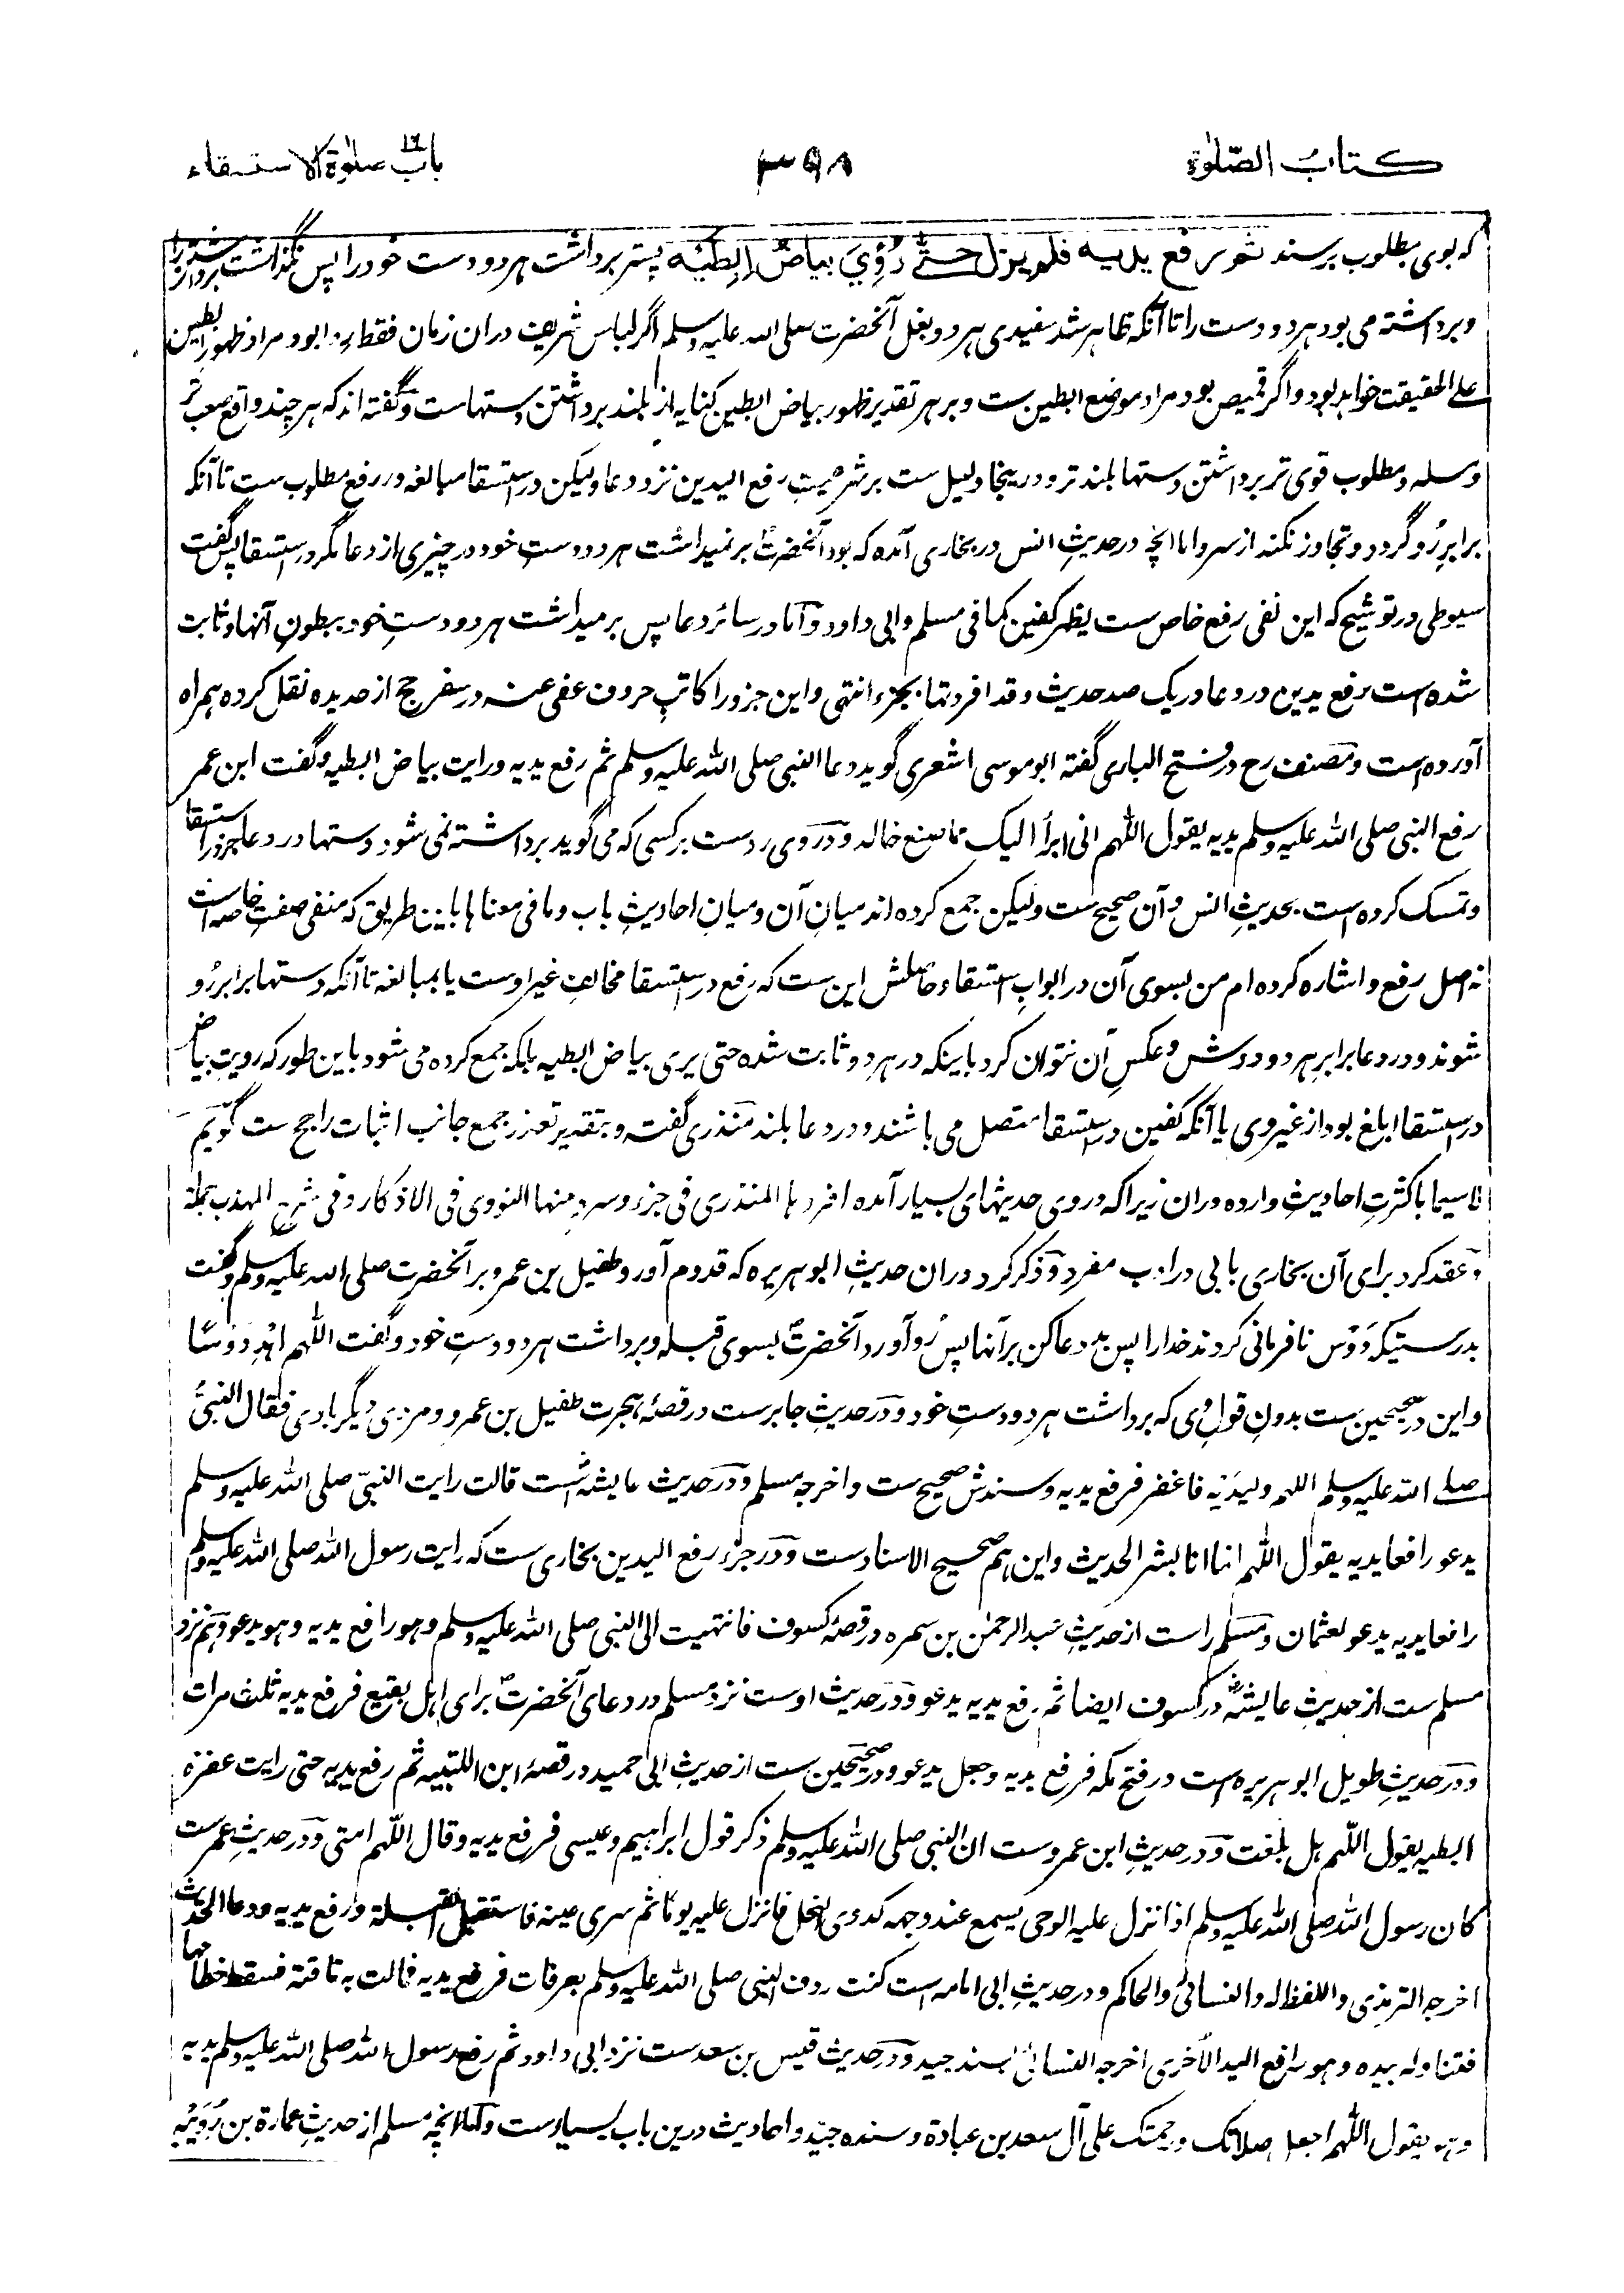 كتابُ الصّلوٰة
۳۹۸
باب صلوٰة الاستسقاء
که بوی مطلوب برسند ثم رفع یدیه فلم یزل حتّٰی رُؤِيَ بیاضُ اِبِطَیْه پستر برداشت هر دو دست خود را پس نگذاشت برداشتن را
و برداشته می بود هر دو دست را تا آنکه ظاهر شد سفیدی هر دو بغل آنحضرت صلی الله علیه وسلم اگر لباس شریف دران زمان فقط ردا بود مراد ظهور ابطین
علی الحقیقت خواهد بود و اگر قمیص بود مراد موضع ابطین ست و بر هر تقدیر ظهور بیاض ابطین کنایه از بلند برداشتن دستهاست و گفته اند که هر چند واقع صعب تر
و مطلوب قوی تر برداشتن دستها بلند تر و درینجا دلیل ست بر شرعیت رفع الیدین نزد دعا ولیکن در استسقا مبالغه در رفع مطلوب ست تا آنکه
برابرِ رُو گردد و تجاوز نکند از سر و اما آنچه در حدیثِ انس در بخاری آمده که بود آنحضرتؐ بر نمیداشت هر دو دستِ خود در چیزی از دعا مگر در استسقا پس گفت
سیوطی در توشیح که این نفی رفع خاص ست بظهر کفین کما فی مسلم و ابی داود و اما در سائر دعا پس بر میداشت هر دو دستِ خود ببطونِ آنها و ثابت
شده است رفع یدین در دعا در یک صد حدیث و قد افردتها بجزء انتهی و این جزو را کاتبِ حروف عفی عنه در سفر حج از حدیده نقل کرده همراه
آورده است و مصنف رح در فتح الباری گفته ابو موسی اشعری گوید دعا النبی صلی الله علیه وسلم ثم رفع یدیه و رایت بیاض ابطیه و گفت ابن عمر
رفع النبی صلی الله علیه وسلم یدیه یقول اللّٰهم انی ابرأ الیک مما صنع خالد و در وی رد ست بر کسی که می گوید برداشته نمی شود دستها در دعا جز در استسقا
و تمسک کرده است بحدیثِ انس و آن صحیح ست ولیکن جمع کرده اند میانِ آن و میانِ احادیثِ باب و ما فی معناها باین طریق که منفی صفتِ خاصه است
نه اصل رفع و اشاره کرده ام من بسوی آن در ابوابِ استسقاء و حاصلش این ست که رفع در استسقا مخالفِ غیر اوست یا بمبالغه تا آنکه دستها برابرِ رُو
شوند و در دعا برابرِ هر دو دوش و عکسِ آن نتوان کرد باینکه در هر دو ثابت شده حتی یری بیاض ابطیه بلکه جمع کرده می شود باین طور که رویتِ بیاض
در استسقا ابلغ بود از غیر وی یا آنکه کفین در استسقا متصل می باشند و در دعا بلند منذری گفته و بتقدیر تعذر جمع جانب اثبات راجح ست گویم
لا سیما با کثرتِ احادیثِ وارده دران زیرا که در وی حدیثهای بسیار آمده افردها المنذری فی جزء و سرد منها النووی فی الاذکار و فی شرح المهذب جملة
و عقد کرد برای آن بخاری بابی در ادب مفرد و ذکر کرد دران حدیثِ ابو هریره که قدوم آورد طفیل بن عمرو بر آنحضرت صلی الله علیه وسلم و گفت
بدرستیکه دَوْس نافرمانی کردند خدا را پس بد دعا کن بر آنها پس رُو آورد آنحضرتؐ بسوی قبله و برداشت هر دو دستِ خود و گفت اللّٰهم اهْدِ دَوْسًا
و این در صحیحین ست بدونِ قولِ وی که برداشت هر دو دستِ خود و در حدیثِ جابر ست در قصۂ هجرت طفیل بن عمرو و مردی دیگر با وی فقال النبیُّ
صلی الله علیه وسلم اللهم ولیدَیْه فاغفر فرفع یدیه و سندش صحیح ست و اخرجه مسلم و در حدیث عایشه است قالت رایت النبیّ صلی الله علیه وسلم
یدعو رافعا یدیه یقول اللّٰهم انما انا بشر الحدیث و این هم صحیح الاسناد ست و در جزء رفع الیدین بخاری ست که رایت رسول الله صلی الله علیه وسلم
رافعا یدیه یدعو لعثمان و مسلم راست از حدیثِ عبدالرحمٰن بن سمره در قصۂ کسوف فانتهیت الی النبی صلی الله علیه وسلم و هو رافع یدیه و هو یدعو و هم نزد
مسلم ست از حدیثِ عایشهؓ در کسوف ایضا ثم رفع یدیه یدعو و در حدیث اوست نزد مسلم در دعای آنحضرتؐ برای اهل بقیع فرفع یدیه ثلث مرات
و در حدیثِ طویل ابو هریره است در فتح مکه فرفع یدیه و جعل یدعو و در صحیحین ست از حدیثِ ابی حمید در قصۂ ابن اللتبیه ثم رفع یدیه حتی رایت عفرة
ابطیه یقول اللّٰهم هل بلغت و در حدیثِ ابن عمرو ست ان النبی صلی الله علیه وسلم ذکر قول ابراهیم و عیسی فرفع یدیه و قال اللّٰهم امتی و در حدیثِ عمر ست
کان رسول الله صلی الله علیه وسلم اذا نزل علیه الوحی یسمع عند وجهه کدوی النحل فانزل علیه یومًا ثم سری عنه فاستقبل القبلة و رفع یدیه و دعا الحدیث
اخرجه الترمذی و اللفظ له و النسائی و الحاکم و در حدیثِ ابی اسامه است کنت ردف النبی صلی الله علیه وسلم بعرفات فرفع یدیه فمالت به ناقته فسقط خطامها
فتناوله بیده و هو رافع الید الأخری اخرجه النسائی بسند جید و در حدیث قیس بن سعد ست نزد ابی داود ثم رفع رسول الله صلی الله علیه وسلم یدیه
و هو یقول اللّٰهم اجعل صلاتک و رحمتک علی آل سعد بن عبادة و سنده جیّد و احادیث درین باب بسیارست و اما آنچه مسلم از حدیثِ عمارة بن رُوَیْبَه